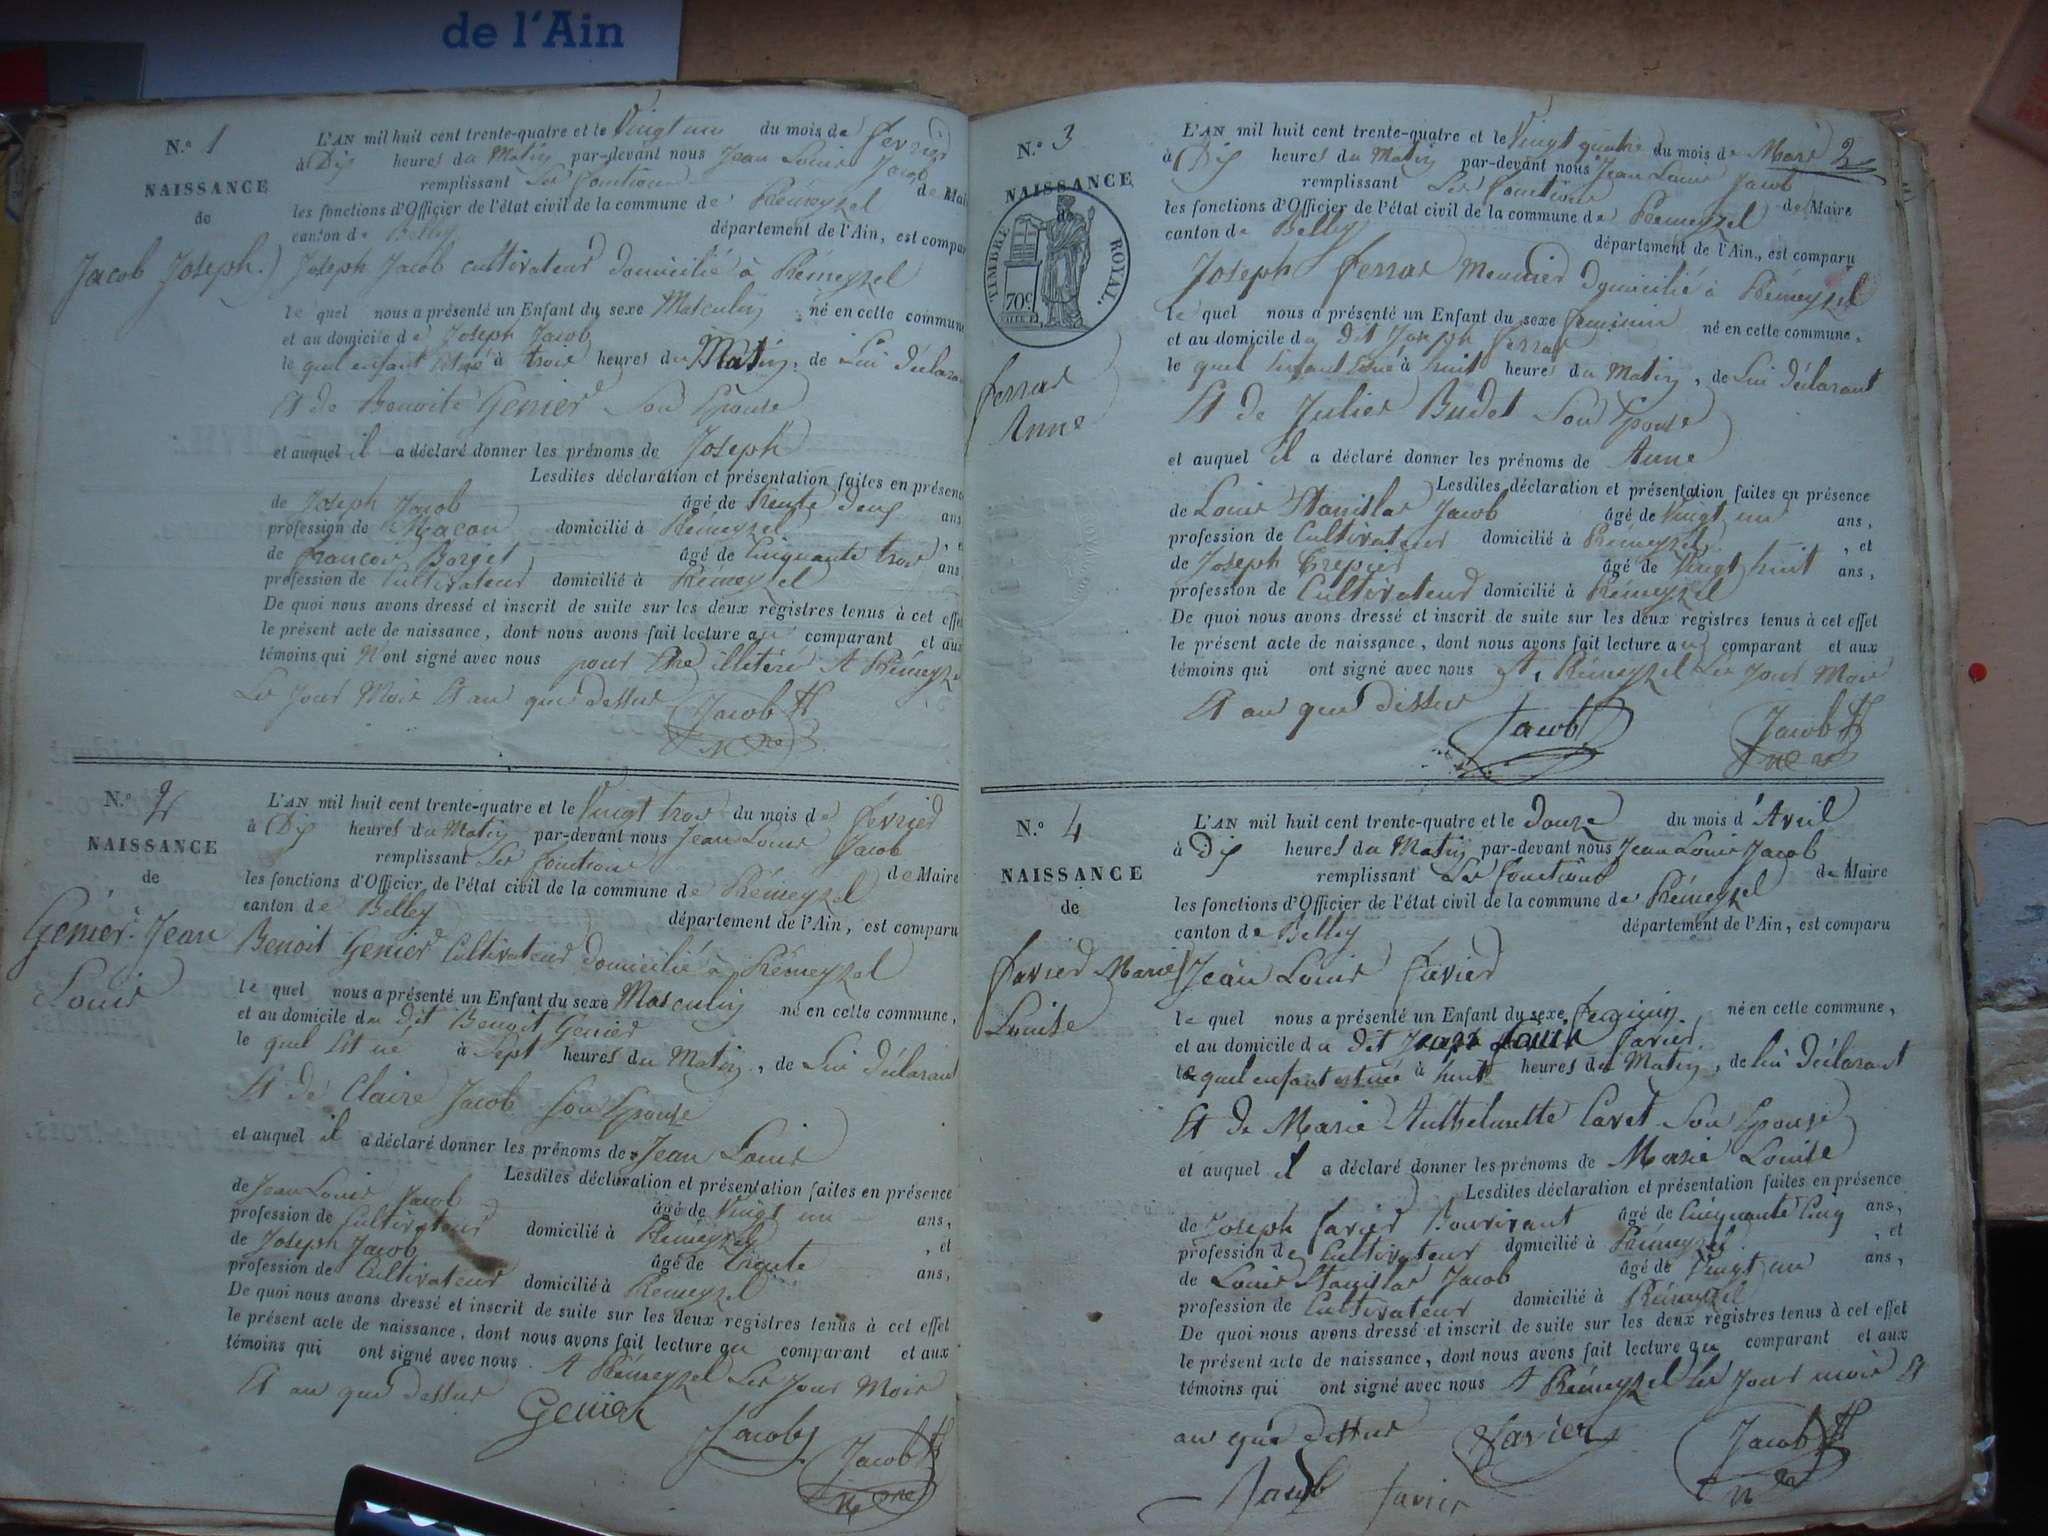 de l'Ain
N.° 1
NAISSANCE
de
Jacob Joseph.
L'AN mil huit cent trente-quatre et le Vingt un du mois de fevrier
à Dix heures du Matin par-devant nous Jean Louis Jacob
remplissant Les fonctions de Mai
les fonctions d'Officier de l'état civil de la commune de Prémeyzel
canton de Belley département de l'Ain, est compar
Joseph Jacob cultivateur domicilié à Prémeyzel
le quel nous a présenté un Enfant du sexe Masculin né en cette commune
et au domicile de Joseph Jacob
le quel enfant est né à trois heures du Matin, de Lui déclara
Et de Benoite Genier Son Epouse
et auquel il a déclaré donner les prénoms de Joseph
Lesdites déclaration et présentation faites en présenc
de Joseph Jacob âgé de trente deux ans
profession de Macon domicilié à Prémeyzel
de francois Borget âgé de Cinquante trois ans
profession de Cultivateur domicilié à Prémeyzel
De quoi nous avons dressé et inscrit de suite sur les deux registres tenus à cet effet
le présent acte de naissance, dont nous avons fait lecture au comparant et aux
témoins qui N'ont signé avec nous pour Etre illétéré A Prémeyzel
Les Jour Mois Et an que dessus
Jacob
N.° 2
NAISSANCE
de
Genier Jean
Louis
L'AN mil huit cent trente-quatre et le Vingt trois du mois de fevrier
à Dix heures du Matin par-devant nous Jean Louis Jacob
remplissant Les fonctions de Maire
les fonctions d'Officier de l'état civil de la commune de Prémeyzel
canton de Belley département de l'Ain, est comparu
Benoit Genier Cultivateur domicilié à Prémeyzel
le quel nous a présenté un Enfant du sexe Masculin né en cette commune,
et au domicile du dit Benoit Genier
le quel Est né à Sept heures du Matin, de Lui déclarant
Et de Claire Jacob Son Epouse
et auquel il a déclaré donner les prénoms de Jean Louis
Lesdites déclaration et présentation faites en présence
de Jean Louis Jacob âgé de Vingt un ans,
profession de Cultivateur domicilié à Prémeyzel, et
de Joseph Jacob âgé de trente ans,
profession de Cultivateur domicilié à Prémeyzel
De quoi nous avons dressé et inscrit de suite sur les deux registres tenus à cet effet
le présent acte de naissance, dont nous avons fait lecture au comparant et aux
témoins qui ont signé avec nous A Prémeyzel Les Jour Mois
Et an que dessus
Genier
Jacob
Jacob
2
N.° 3
NAISSANCE
TIMBRE ROYAL.
70c
ferrar
Anne
L'AN mil huit cent trente-quatre et le Vingt quatre du mois de Mars
à Dix heures du Matin par-devant nous Jean Louis Jacob
remplissant Les fonctions de Maire
les fonctions d'Officier de l'état civil de la commune de Prémeyzel
canton de Belley département de l'Ain, est comparu
Joseph ferrar Meunier Domicilié à Prémeyzel
le quel nous a présenté un Enfant du sexe feminin né en cette commune,
et au domicile du dit Joseph ferrar
le quel Enfant Est né à huit heures du Matin, de Lui déclarant
Et de Julie Budet Son Epouse
et auquel il a déclaré donner les prénoms de Anne
Lesdites déclaration et présentation faites en présence
de Louis Stanislas Jacob âgé de Vingt un ans,
profession de Cultivateur domicilié à Prémeyzel, et
de Joseph âgé de Vingt huit ans,
profession de Cultivateur domicilié à Prémeyzel
De quoi nous avons dressé et inscrit de suite sur les deux registres tenus à cet effet
le présent acte de naissance, dont nous avons fait lecture au comparant et aux
témoins qui ont signé avec nous A Prémeyzel Les Jour Mois
Et an que dessus
Jacob
Jacob
N.° 4
NAISSANCE
de
favier Marie
Louise
L'AN mil huit cent trente-quatre et le Douze du mois d'Avril
à Dix heures du Matin par-devant nous Jean Louis Jacob
remplissant Les fonctions de Maire
les fonctions d'Officier de l'état civil de la commune de Prémeyzel
canton de Belley département de l'Ain, est comparu
Jean Louis favier
le quel nous a présenté un Enfant du sexe feminin, né en cette commune,
et au domicile du dit Jean Louis favier
le quel enfant est née à huit heures du Matin, de lui déclarant
Et de Marie Anthelmette Cavet Son Epouse
et auquel il a déclaré donner les prénoms de Marie Louise
Lesdites déclaration et présentation faites en présence
de Joseph favier âgé de Cinquante Cinq ans,
profession de Cultivateur domicilié à Prémeyzel, et
de Louis Stanislas Jacob âgé de Vingt un ans,
profession de Cultivateur domicilié à Prémeyzel
De quoi nous avons dressé et inscrit de suite sur les deux registres tenus à cet effet
le présent acte de naissance, dont nous avons fait lecture au comparant et aux
témoins qui ont signé avec nous A Prémeyzel les Jour mois Et
an que dessus
favier
Jacob
Jacob
favier